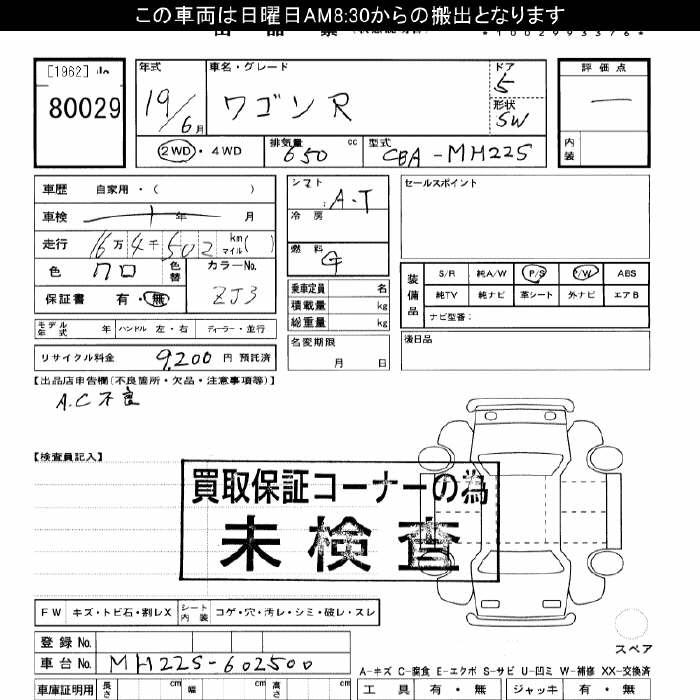 この車両は日曜日AM8:30からの搬出となります
*1002993376*
[1962]
80029
年式
19/6月
車名・グレード
ワゴンR
ドア
5
形状
SW
評価点
一
内装
2WD・4WD
排気量 650 cc
型式 CBA-MH22S
車歴 自家用・( )
車検 年 月
走行 16万4千502 km マイル( )
色 クロ 色替
カラーNo. ZJ3
保証書 有・無
モデル年式 年 ハンドル 左・右 ディーラー・並行
リサイクル料金 9,200 円 預託済
シフト A・T
冷房
燃料 G
乗車定員 名
積載量 kg
総重量 kg
名変期限
月 日
セールスポイント
装備品
S/R 純A/W P/S P/W ABS
純TV 純ナビ 革シート 外ナビ エアB
ナビ型番:
後日品
【出品店申告欄(不良箇所・欠品・注意事項等)】
A.C不良
【検査員記入】
買取保証コーナーの為
未検査
FW キズ・トビ石・割レX シート内装 コゲ・穴・汚レ・シミ・破レ・スレ
登録No.
車台No. MH22S-602500
スペア
A-キズ C-腐食 E-エクボ S-サビ U-凹ミ W-補修 XX-交換済
車庫証明用 長さ cm 幅 cm 高さ cm
工具 有・無 ジャッキ 有・無